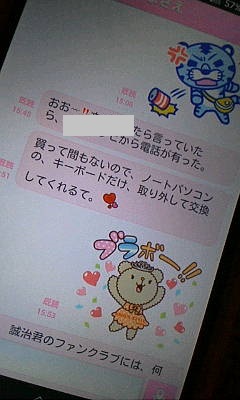 57%
既読
15:08
おおー‼
たら言っていた
ら、
から電話が有った。
既読
15:48
買って間もないので、ノートパソコン
の、キーボードだけ、取り外して交換
してくれるて。
:51
ブラボー!!
既読
15:53
誠治君のファンクラブには、何